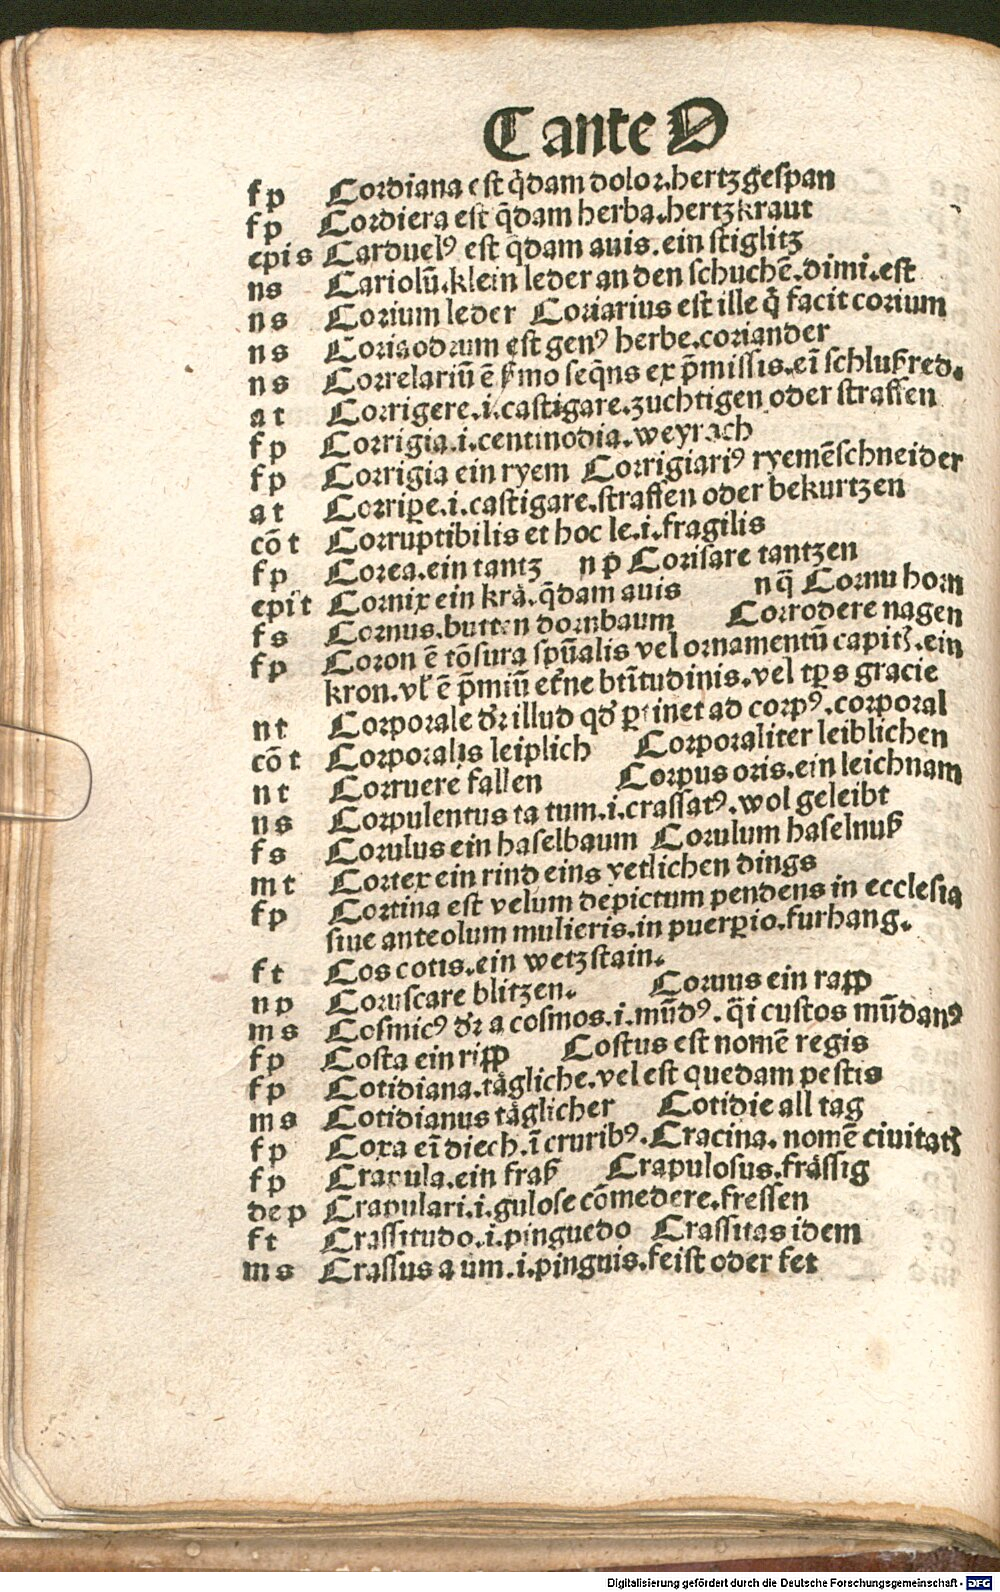 C ante D
f p Cordiana est q̄dam dolor. hertzgespan
f p Cordiera est q̄dam herba. hertzkraut
epi s Carduelꝰ est q̄dam auis. ein stiglitz
n s Cariolū. klein leder an den schuchē. dimi. est
n s Corium leder Coriarius est ille q̄ facit corium
n s est genꝰ herbe. coriander
n s Correlariū ē ẜmo seq̄ns ex p̄missis. eī schlußred.
a t Corrigere. i. castigare. zuchtigen oder straffen
f p Corrigia. i. centinodia. weyrach
f p Corrigia ein ryem Corrigiariꝰ ryemēschneider
a t Corriꝑe. i. castigare. straffen oder bekurtzen
cō t Corruptibilis et hoc le. i. fragilis
f p Corea. ein tantz n p Corisare tantzen
epi t Cornix ein krä. q̄dam auis n q̄ Cornu horn
f s Cornus. butten dornbaum Corrodere nagen
f p Coron ē tōsura spūalis vel ornamentū capitꝭ. ein
kron. vl̓ ē p̄miū et̓ne btītudinis. vel tꝑs gracie
n t Corporale dr̓ illud qd̓ ꝑtinet ad corpꝰ. corporal
cō t Corporalis leiplich Corporaliter leiblichen
n t Corruere fallen Corpus oris. ein leichnam
n s Corpulentus ta tum. i. crassatꝰ. wol geleibt
f s Corulus ein haselbaum Corulum haselnuß
m t Cortex ein rind eins yetlichen dings
f p Cortina est velum depictum pendens in ecclesia
siue anteolum mulieris. in puerꝑio. furhang.
f t Cos cotis. ein wetzstain.
n p Coruscare blitzen. Coruus ein rapp
m s Cosmicꝰ dr̓ a cosmos. i. mūdꝰ. q̄i custos mūdanꝰ
f p Costa ein ripp Costus est nomē regis
f p Cotidiana. tägliche. vel est quedam pestis
m s Cotidianus täglicher Cotidie all tag
f p Coxa eī diech. ī cruribꝰ. Cracina. nomē ciuitatꝭ
f p Crapula. ein fraß Crapulosus. frässig
de p Crapulari. i. gulose cōmedere. fressen
f t Crassitudo. i. pinguedo Crassitas idem
m s Crassus a um. i. pinguis. feist oder fet
Digitalisierung gefördert durch die Deutsche Forschungsgemeinschaft - DFG